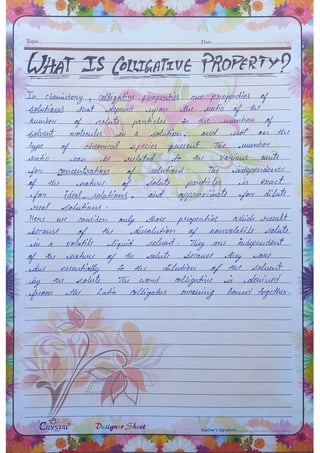 Topic
Date
WHAT IS COLLIGATIVE PROPERTY?
In chemistry, colligative properties are properties of
solutions that depend upon the ratio of the
number of solute particles to the number of
solvent molecules in a solution, and not on the
type of chemical species present. The number
ratio can be related to the various units
for concentration of solutions. The independence
of the nature of solute particles is exact
for ideal solutions, and approximate for dilute
real solutions.
Here we consider only those properties which result
because of the dissolution of nonvolatile solute
in a volatile liquid solvent. They are independent
of the nature of the solute because they are
due essentially to the dilution of the solvent
by the solute. The word colligative is derived
from the Latin colligatus meaning bound together.
CRYSTAL
Designer Sheet
Teacher's Signature